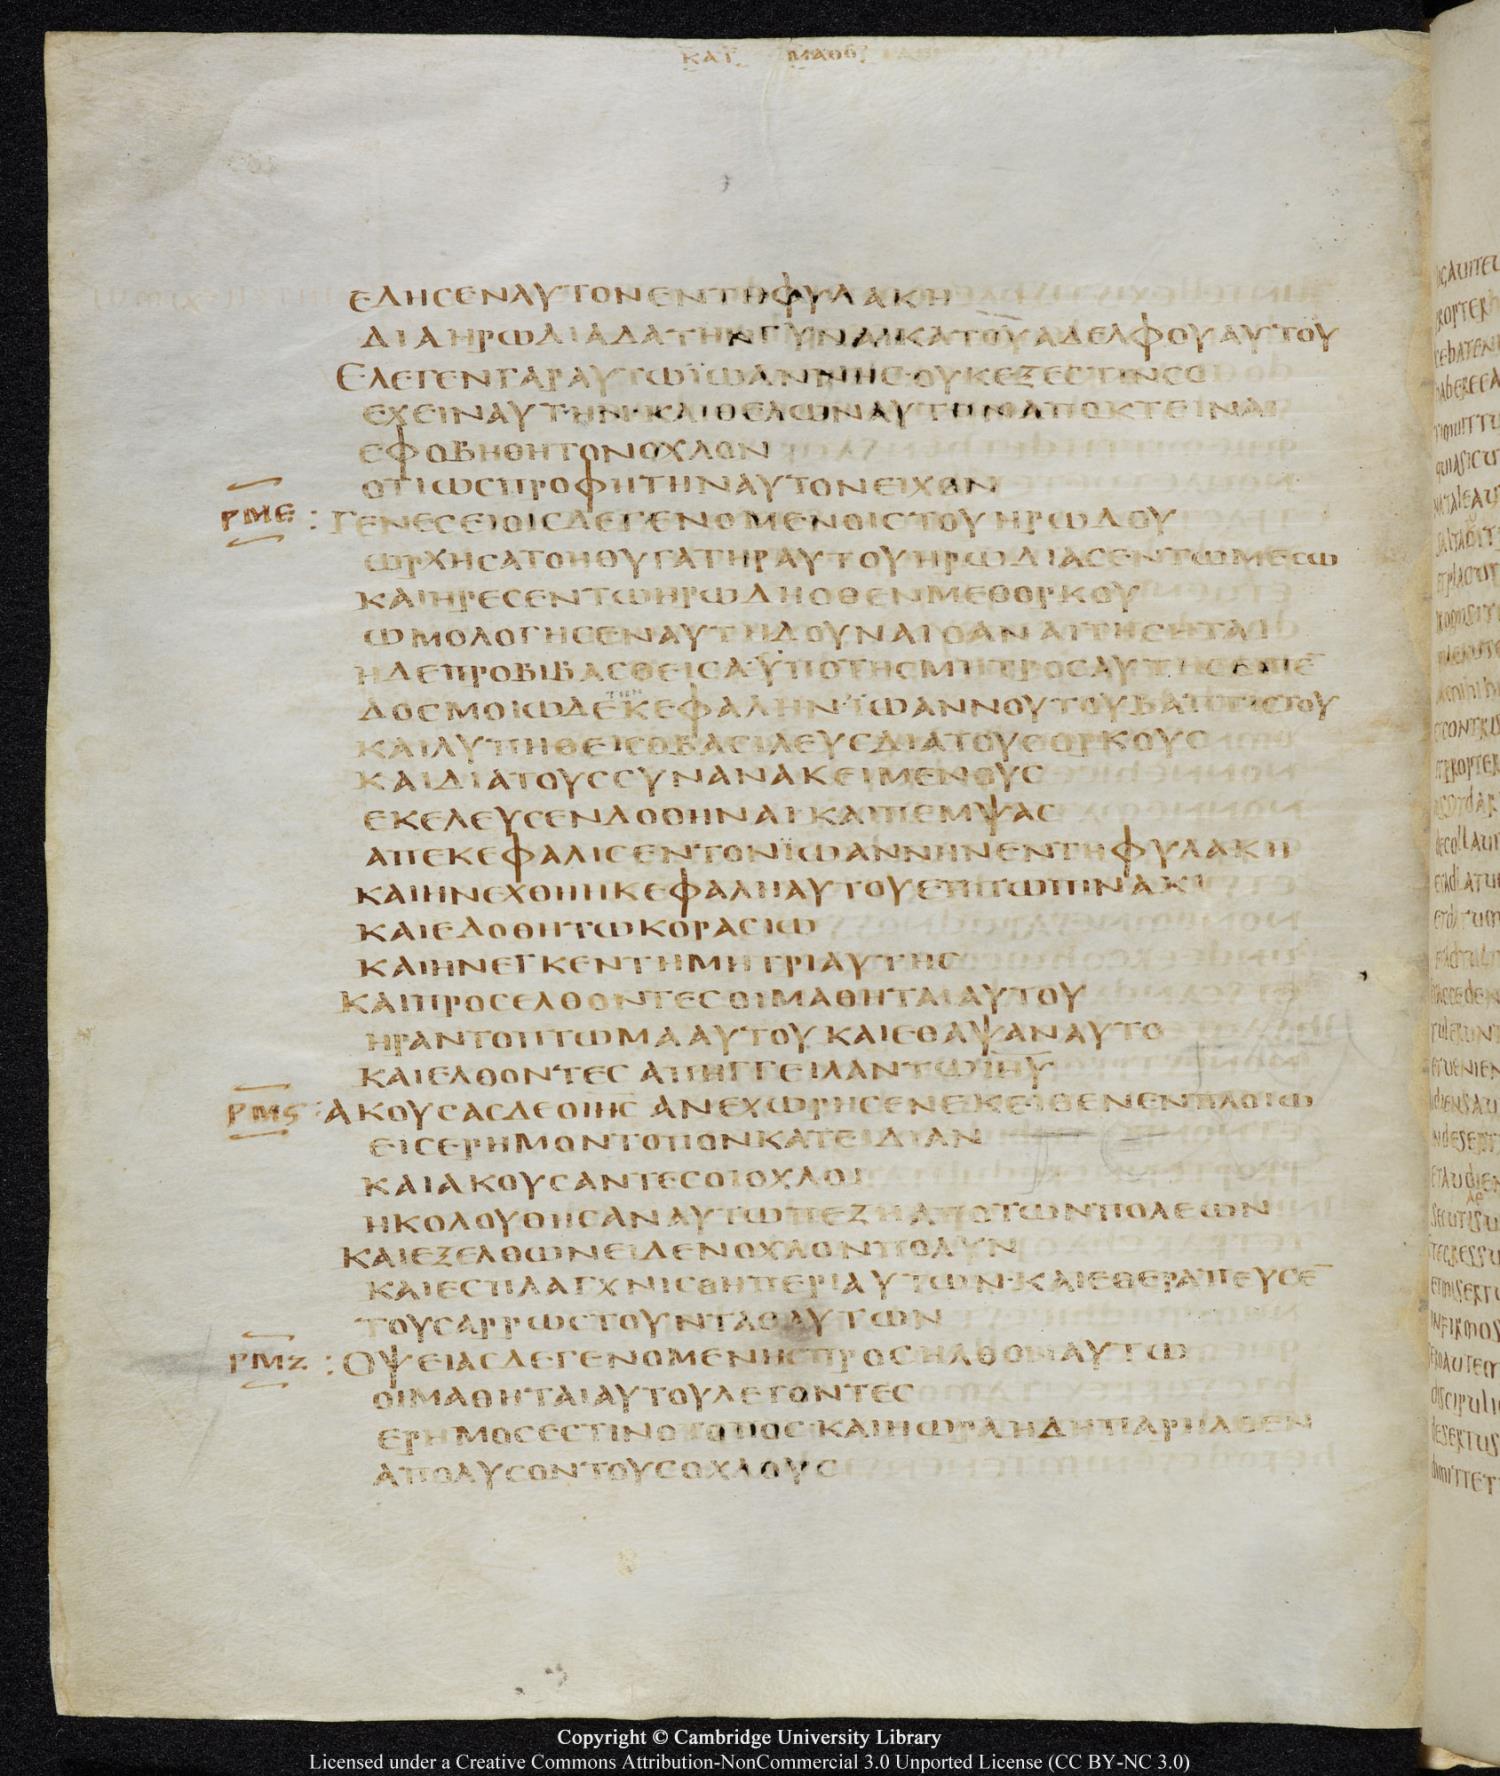 ΚΑΤ ΜΑΘΘ
ΕΔΗСΕΝΑΥΤΟΝΕΝΤΗΦΥΛΑΚΗ
ΔΙΑΗΡωΔΙΑΔΑΤΗΝΓΥΝΑΙΚΑΤΟΥΑΔΕΛΦΟΥΑΥΤΟΥ
ΕΛΕΓΕΝΓΑΡΑΥΤωΪωΑΝΝΗС·ΟΥΚΕΞΕСΤΙΝСΟΙ
ΕΧΕΙΝΑΥΤΗΝ·ΚΑΙΘΕΛωΝΑΥΤΟΝΑΠΟΚΤΕΙΝΑΙ
ΕΦΟΒΗΘΗΤΟΝΟΧΛΟΝ
ΟΤΙωСΠΡΟΦΗΤΗΝΑΥΤΟΝΕΙΧΑΝ
ΡΜΕ : ΓΕΝΕСΕΙΟΙСΔΕΓΕΝΟΜΕΝΟΙСΤΟΥΗΡωΔΟΥ
ωΡΧΗСΑΤΟΗΘΥΓΑΤΗΡΑΥΤΟΥΗΡωΔΙΑСΕΝΤωΜΕСω
ΚΑΙΗΡΕСΕΝΤωΗΡωΔΗΟΘΕΝΜΕΘΟΡΚΟΥ
ωΜΟΛΟΓΗСΕΝΑΥΤΗΔΟΥΝΑΙΟΑΝΑΙΤΗСΗΤΑΙ
ΗΔΕΠΡΟΒΙΒΑСΘΕΙСΑ·ΫΠΟΤΗСΜΗΤΡΟСΑΥΤΗСΕΙΠΕ̅
ΔΟСΜΟΙωΔΕΚΕΦΑΛΗΝΪωΑΝΝΟΥΤΟΥΒΑΠΤΙСΤΟΥ
ΚΑΙΛΥΠΗΘΕΙСΟΒΑСΙΛΕΥСΔΙΑΤΟΥСΟΡΚΟΥС
ΚΑΙΔΙΑΤΟΥССΥΝΑΝΑΚΕΙΜΕΝΟΥС
ΕΚΕΛΕΥСΕΝΔΟΘΗΝΑΙΚΑΙΠΕΜΨΑС
ΑΠΕΚΕΦΑΛΙСΕΝΤΟΝΪωΑΝΝΗΝΕΝΤΗΦΥΛΑΚΗ
ΚΑΙΗΝΕΧΘΗΗΚΕΦΑΛΗΑΥΤΟΥΕΠΙΤωΠΙΝΑΚΙ
ΚΑΙΕΔΟΘΗΤωΚΟΡΑСΙω
ΚΑΙΗΝΕΓΚΕΝΤΗΜΗΤΡΙΑΥΤΗС
ΚΑΙΠΡΟСΕΛΘΟΝΤΕСΟΙΜΑΘΗΤΑΙΑΥΤΟΥ
ΗΡΑΝΤΟΠΤωΜΑΑΥΤΟΥΚΑΙΕΘΑΨΑΝΑΥΤΟ
ΚΑΙΕΛΘΟΝΤΕСΑΠΗΓΓΕΙΛΑΝΤωΙΗΥ
ΡΜϚ : ΑΚΟΥСΑСΔΕΟΙΗСΑΝΕΧωΡΗСΕΝΕΚΕΙΘΕΝΕΝΠΛΟΙω
ΕΙСΕΡΗΜΟΝΤΟΠΟΝΚΑΤΕΙΔΙΑΝ
ΚΑΙΑΚΟΥСΑΝΤΕСΟΙΟΧΛΟΙ
ΗΚΟΛΟΥΘΗСΑΝΑΥΤωΠΕΖΗΑΠΟΤωΝΠΟΛΕωΝ
ΚΑΙΕΞΕΛΘωΝΕΙΔΕΝΟΧΛΟΝΠΟΛΥΝ
ΚΑΙΕСΠΛΑΓΧΝΙСΘΗΠΕΡΙΑΥΤωΝ·ΚΑΙΕΘΕΡΑΠΕΥСΕ̅
ΤΟΥСΑΡΡωСΤΟΥΝΤΑСΑΥΤωΝ
ΡΜΖ : ΟΨΕΙΑСΔΕΓΕΝΟΜΕΝΗСΠΡΟСΗΛΘΟΝΑΥΤω
ΟΙΜΑΘΗΤΑΙΑΥΤΟΥΛΕΓΟΝΤΕС
ΕΡΗΜΟСΕСΤΙΝΟΤΟΠΟС·ΚΑΙΗωΡΑΗΔΗΠΑΡΗΛΘΕΝ
ΑΠΟΛΥСΟΝΤΟΥСΟΧΛΟΥС
Copyright © Cambridge University Library
Licensed under a Creative Commons Attribution-NonCommercial 3.0 Unported License (CC BY-NC 3.0)